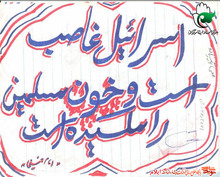 اسرائیل غاصب
است و خون مسلمین
را مکیده است
«امام خمینی»